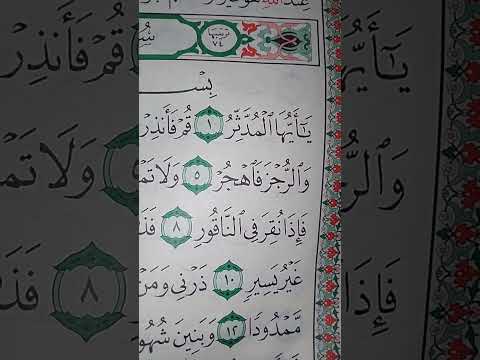 عِندَ ٱللَّهِ هُوَ
تَرْتِيبُهَا ٧٤ سُو
بِسْـ
يَٰٓأَيُّهَا ٱلْمُدَّثِّرُ ١ قُمْ فَأَنذِرْ
وَٱلرُّجْزَ فَٱهْجُرْ ٥ وَلَا تَمْ
فَإِذَا نُقِرَ فِى ٱلنَّاقُورِ ٨ فَذَ
غَيْرُ يَسِيرٍ ١٠ ذَرْنِى وَمَنْ
مَّمْدُودًا ١٢ وَبَنِينَ شُهُو